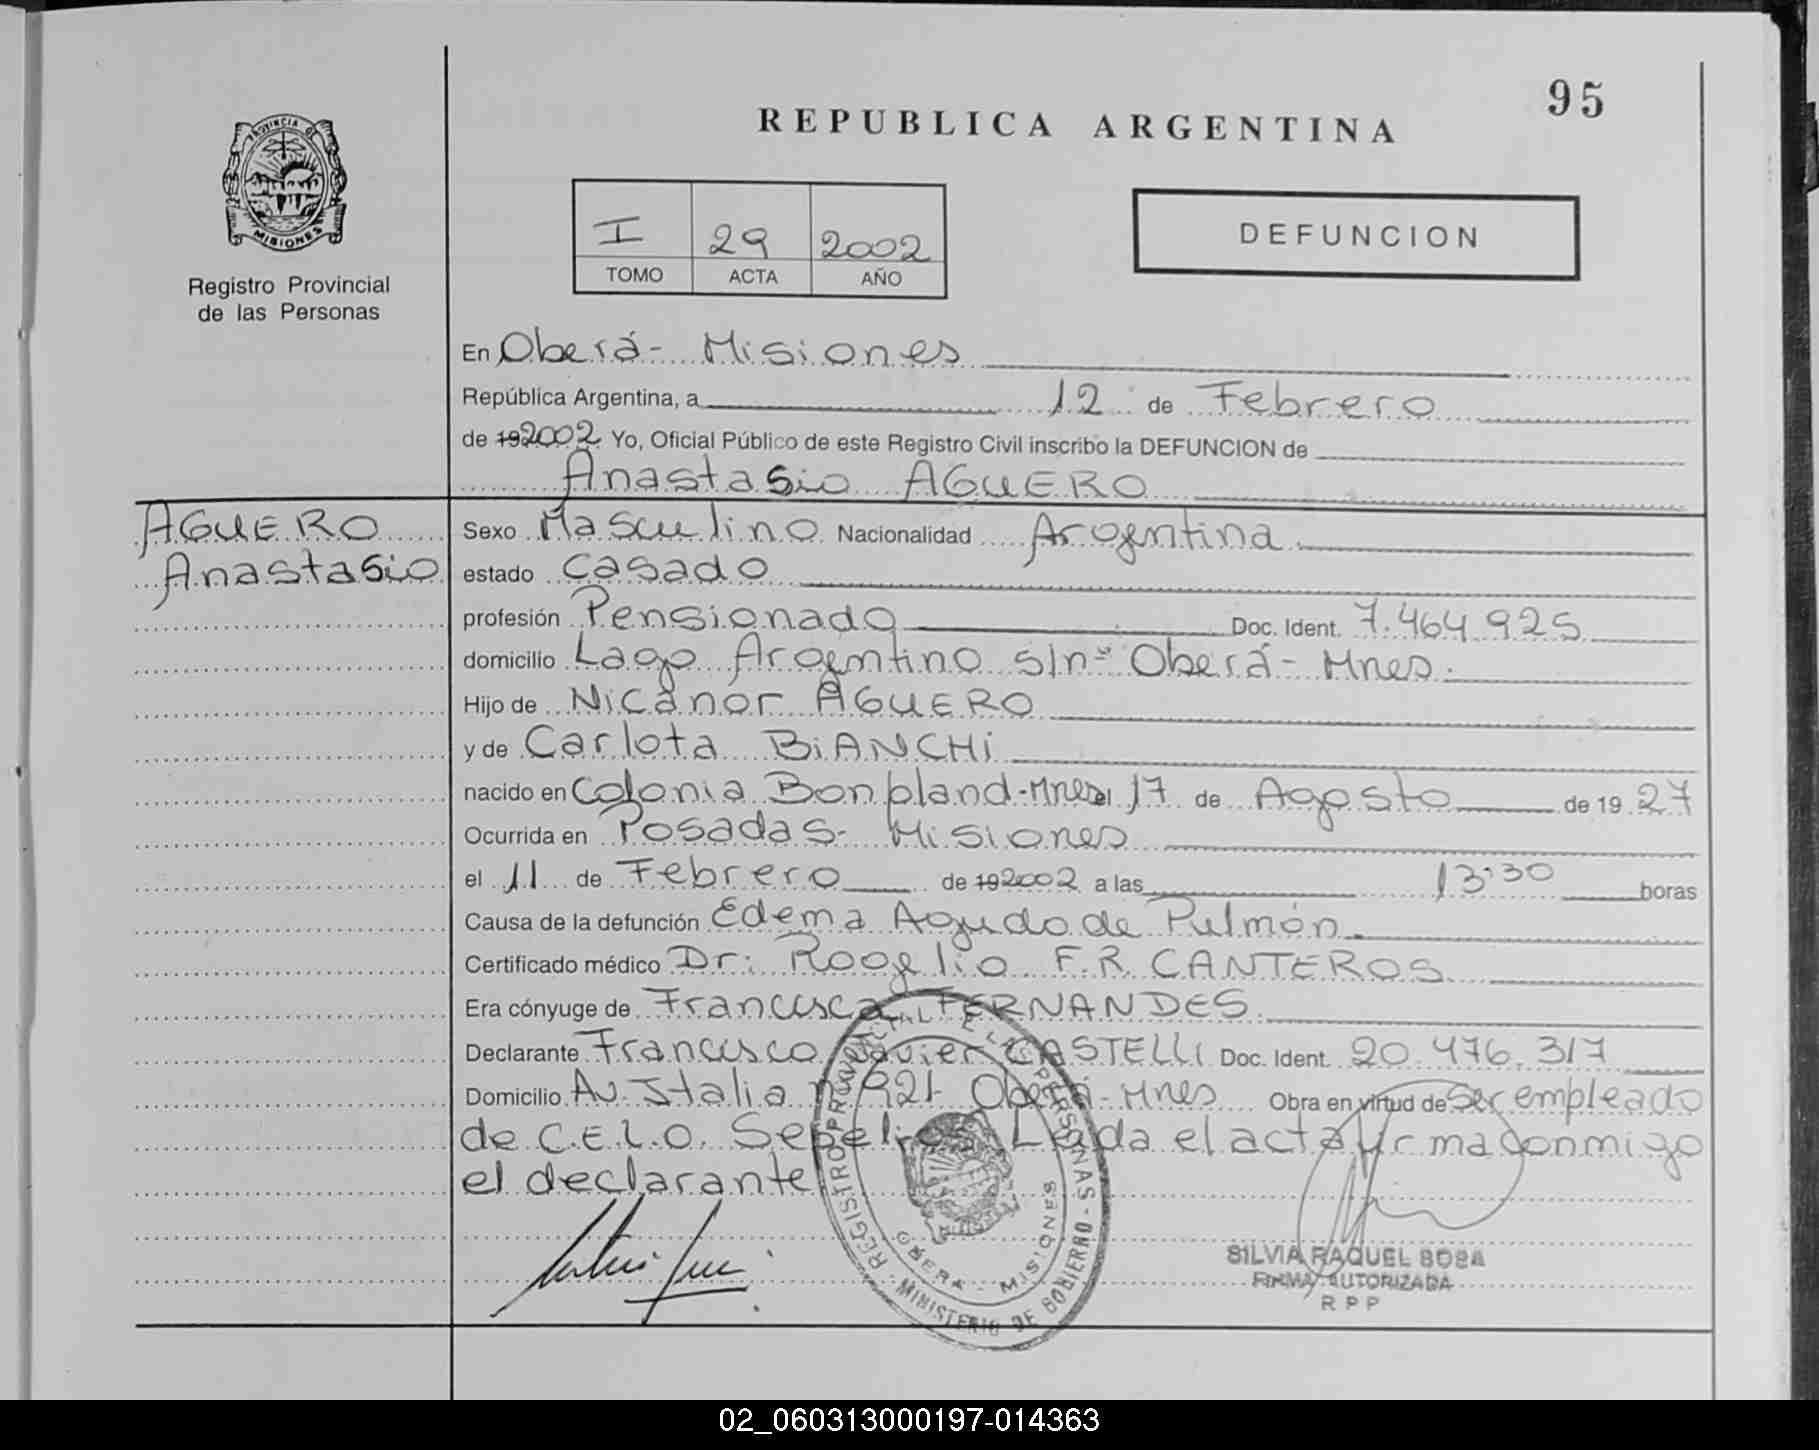 95
REPUBLICA ARGENTINA
PROVINCIA DE
MISIONES
Registro Provincial
de las Personas
I 29 2002
TOMO ACTA AÑO
DEFUNCION
En Oberá- Misiones
República Argentina, a 12 de Febrero
de 192002 Yo, Oficial Público de este Registro Civil inscribo la DEFUNCION de
Anastasio AGUERO
AGUERO
Anastasio
Sexo Masculino Nacionalidad Argentina.
estado casado
profesión Pensionado Doc. Ident. 7.464.925
domicilio Lago Argentino s/nº Oberá- Mnes.
Hijo de Nicanor AGUERO
y de Carlota BiANCHi
nacido en Colonia Bonpland-Mnes el 17 de Agosto de 19 27
Ocurrida en Posadas- Misiones
el 11 de Febrero de 192002 a las 13:30 horas
Causa de la defunción Edema Agudo de Pulmón.
Certificado médico Dr: Rogelio F.R. CANTEROS
Era cónyuge de Francisca FERNANDES
Declarante Francisco Javier CASTELLI Doc. Ident. 20.476.317
Domicilio Av. Italia nº 921- Oberá- Mnes Obra en virtud de Ser empleado
de C.E.L.O. Sepelios Leida el acta firma conmigo
el declarante
REGISTRO PROVINCIAL DE LAS PERSONAS - MINISTERIO DE GOBIERNO -
OBERA - MISIONES
SILVIA RAQUEL BOSA
FIRMA AUTORIZADA
R P P
02_060313000197-014363